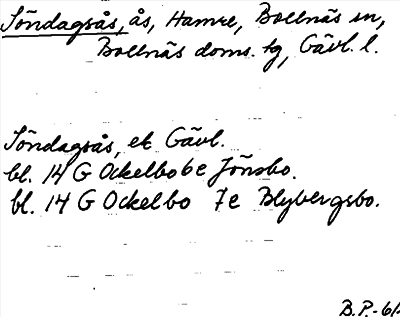 Söndagsås, ås, Hamre, Bollnäs sn,
Bollnäs doms. tg, Gävl. l.
Söndagsås, ek Gävl.
bl. 14 G Ockelbo 6e Jönsbo.
bl. 14 G Ockelbo 7e Blybergsbo.
B.P.-61.